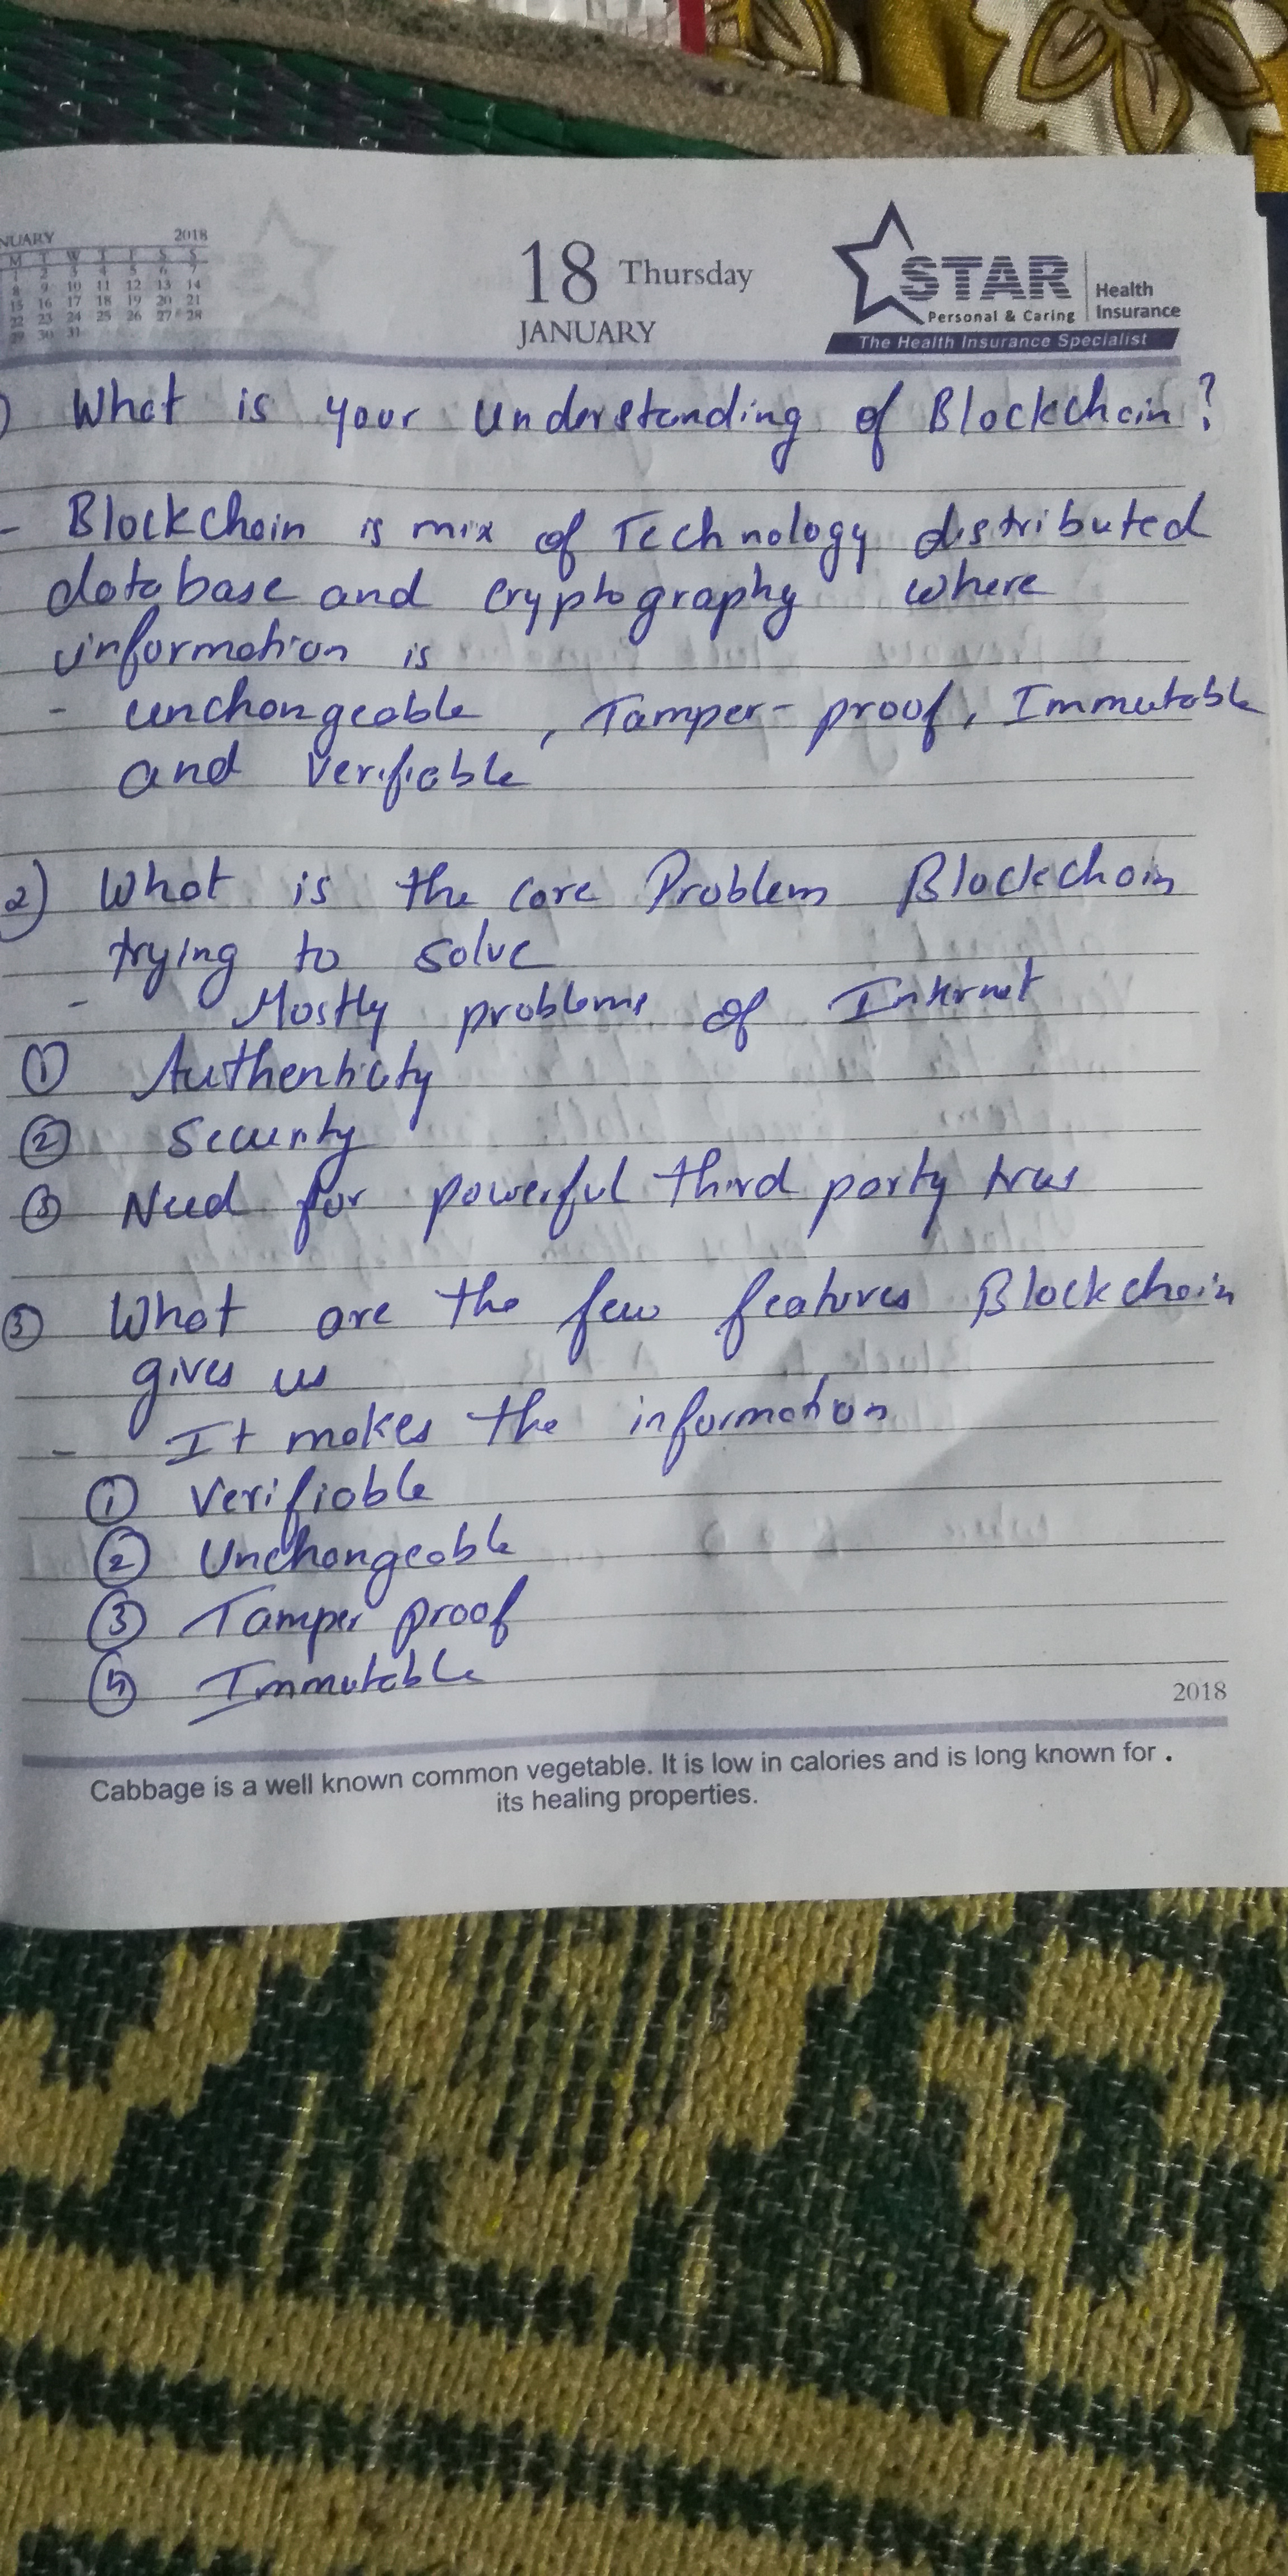 NUARY 2018
M T W T F S S
1 2 3 4 5 6 7
8 9 10 11 12 13 14
15 16 17 18 19 20 21
22 23 24 25 26 27 28
29 30 31
18 Thursday
JANUARY
STAR Health Insurance
Personal & Caring
The Health Insurance Specialist
) What is your Understanding of Blockchain?
- Blockchain is mix of Technology distributed
database and cryptography where
information is
- unchangeable, Tamper-proof, Immutable
and Verifiable
2) What is the core Problem Blockchain
trying to solve
- Mostly problems of Internet
① Authenticity
② Security
③ Need for powerful third party trus
③ What are the few features Blockchain
gives us
- It makes the information
① Verifiable
② Unchangeable
③ Tamper proof
④ Immutable
2018
Cabbage is a well known common vegetable. It is low in calories and is long known for .
its healing properties.